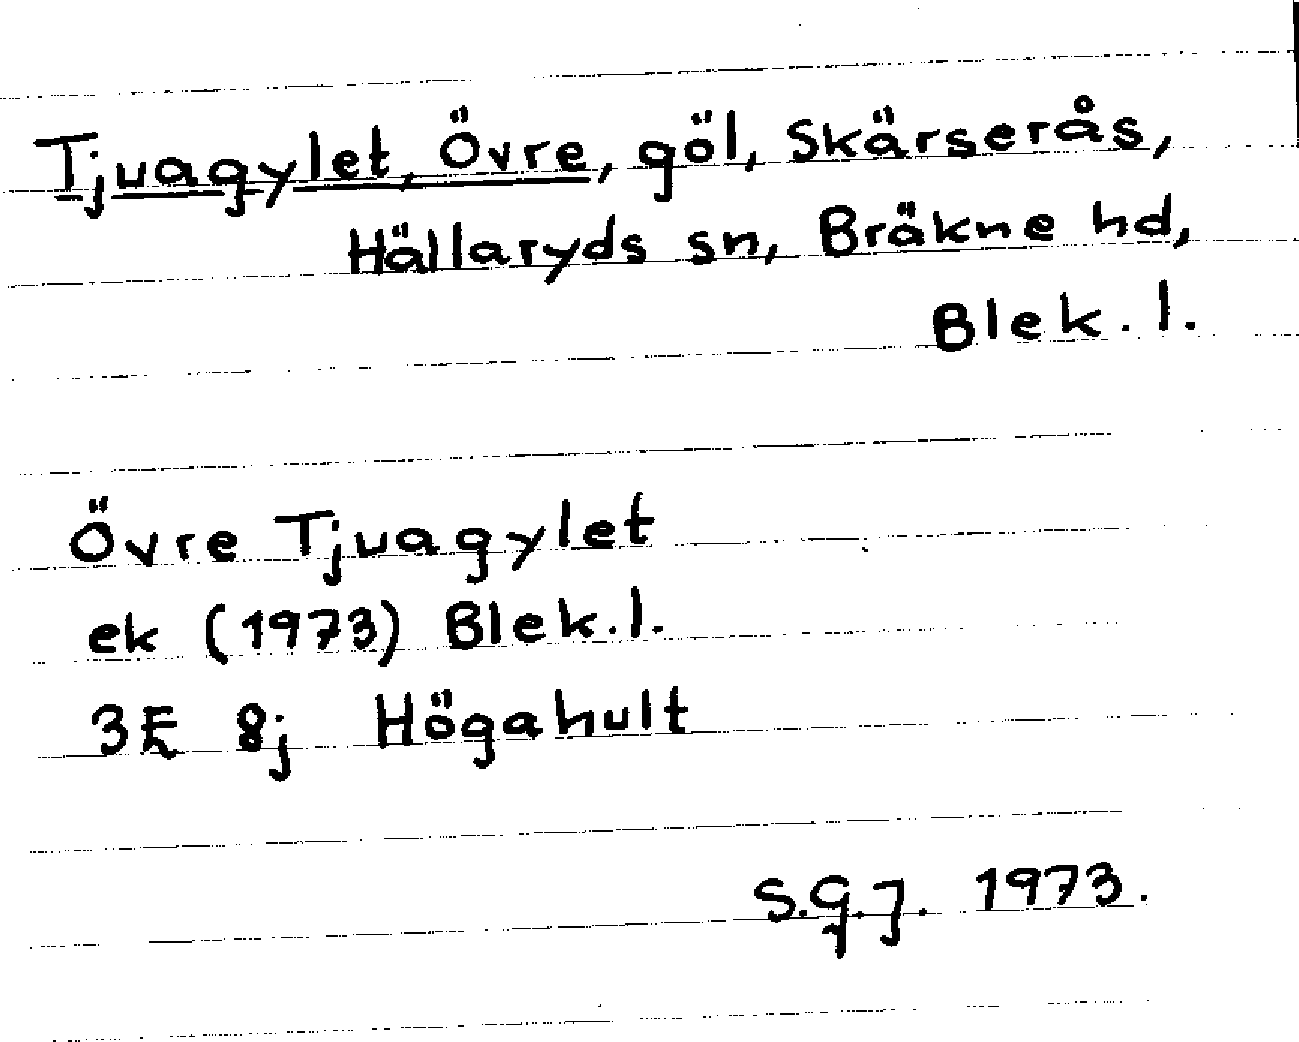 Tjuagylet, Övre, göl, Skärserås,
Hällaryds sn, Bräkne hd,
Blek. l.
Övre Tjuagylet
ek (1973) Blek. l.
3E 8j Högahult
S.G.J. 1973.